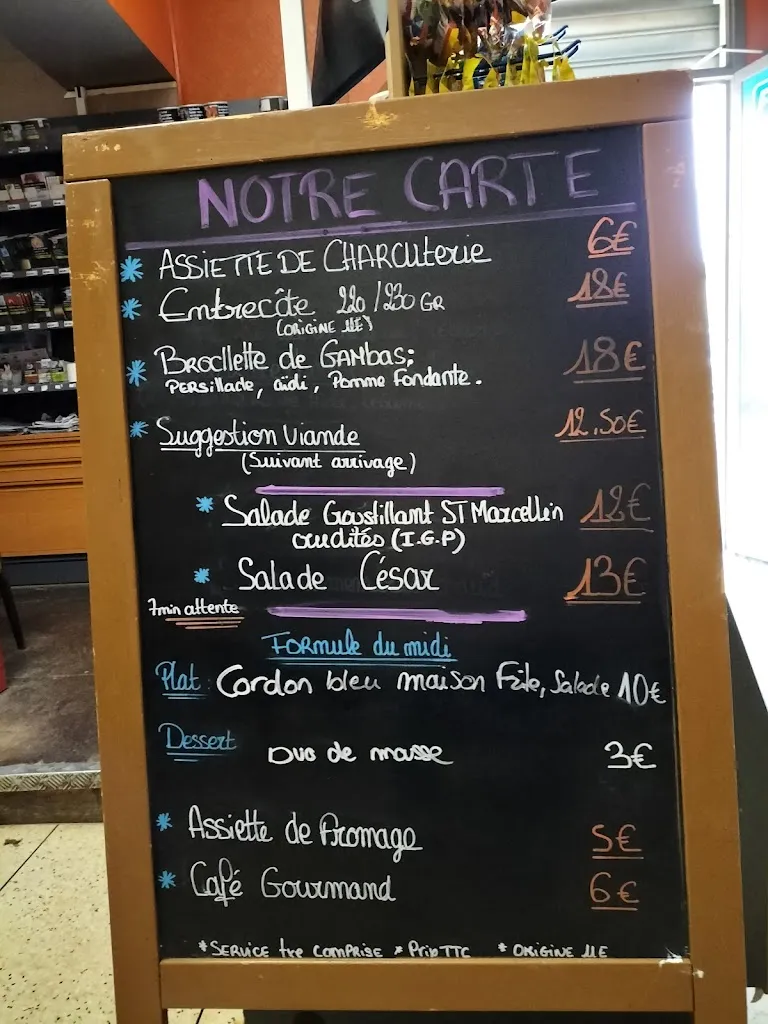 NOTRE CARTE
* ASSIETTE DE CHARCUterie 6€
* Entrecôte 220/230 GR 18€
(ORIGINE UE)
* Brochette de GAMBAS: 18€
PERSILLADE, aïoli, Pomme Fondante.
* Suggestion Viande 12.50€
(Suivant arrivage)
* Salade Croustillant ST Marcellin 12€
crudités (I.G.P)
* Salade César 13€
7min attente
FORMULE du midi
Plat: Cordon bleu maison Frite, Salade 10€
Dessert Duo de mousse 3€
* Assiette de Fromage 5€
* Café Gourmand 6€
*SERVICE tre COMPRISE * Prix TTC * ORIGINE UE